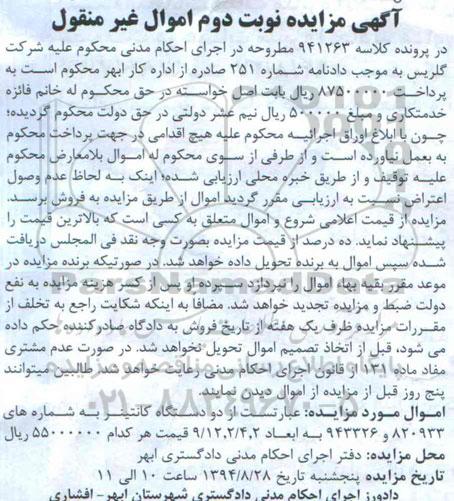 آگهی مزایده نوبت دوم اموال غیر منقول
در پرونده کلاسه ۹۴۱۲۶۳ مطروحه در اجرای احکام مدنی محکوم علیه شرکت
گلریس به موجب دادنامه شماره ۲۵۱ صادره از اداره کار ابهر محکوم است به
پرداخت ۸۷۵۰۰۰۰۰ ریال بابت اصل خواسته در حق محکوم له خانم فائزه
خدمتکاری و مبلغ ۵۰۰۰۰۰۰ ریال نیم عشر دولتی در حق دولت محکوم گردیده؛
چون با ابلاغ اوراق اجرائیه محکوم علیه هیچ اقدامی در جهت پرداخت محکوم
به بعمل نیاورده است و از طرفی از سوی محکوم له اموال بلامعارض محکوم
علیه توقیف و از طریق خبره محلی ارزیابی شده؛ اینک به لحاظ عدم وصول
اعتراض نسبت به ارزیابی مقرر گردید اموال از طریق مزایده به فروش برسد.
مزایده از قیمت اعلامی شروع و اموال متعلق به کسی است که بالاترین قیمت را
پیشنهاد نماید. ده درصد از قیمت مزایده بصورت وجه نقد فی المجلس دریافت
شده سپس اموال به برنده تحویل داده خواهد شد. در صورتیکه برنده مزایده در
موعد مقرر بقیه بهاء اموال را نپردازد سپرده او پس از کسر هزینه مزایده به نفع
دولت ضبط و مزایده تجدید خواهد شد. مضافا به اینکه شکایت راجع به تخلف از
مقررات مزایده ظرف یک هفته از تاریخ فروش به دادگاه صادرکننده حکم داده
می شود، قبل از اتخاذ تصمیم اموال تحویل نخواهد شد. در صورت عدم مشتری
مفاد ماده ۱۳۱ از قانون اجرای احکام مدنی رعایت خواهد شد. طالبین میتوانند
پنج روز قبل از مزایده از اموال دیدن نمایند.
اموال مورد مزایده: عبارتست از دو دستگاه کانتینر به شماره های
۸۲۰۹۳۳ و ۹۴۳۳۲۶ به ابعاد ۹/۱۲,۲/۴,۲ قیمت هر کدام ۵۵۰۰۰۰۰۰ ریال
محل مزایده: دفتر اجرای احکام مدنی دادگستری ابهر
تاریخ مزایده پنجشنبه تاریخ ۱۳۹۴/۸/۲۸ ساعت ۱۰ الی ۱۱
دادورز اجرای احکام مدنی دادگستری شهرستان ابهر- افشاری